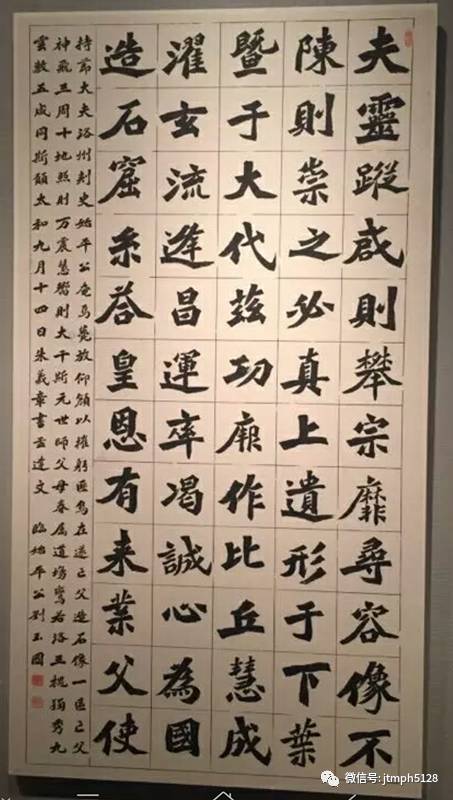 夫靈蹤啟則攀宗靡尋容像不
陳則崇之必真上遺形于下葉
暨于大代茲功厥作比丘慧成
濯玄流逢昌運率渴誠心為國
造石窟糸荅皇恩有来業父使
持節大夫洛州刾史始平公奄焉薨放仰顏以摧躬匪烏在遂亡父造石像一區亡父
神飛三周十地照則万震慧嚮則大千斯元世師父母眷屬道場鸞若洛三槐獨秀九
雲敷五咸同斯願太和九月十四日朱義章書孟達文 臨始平公劉玉國
微信号: jtmph5128